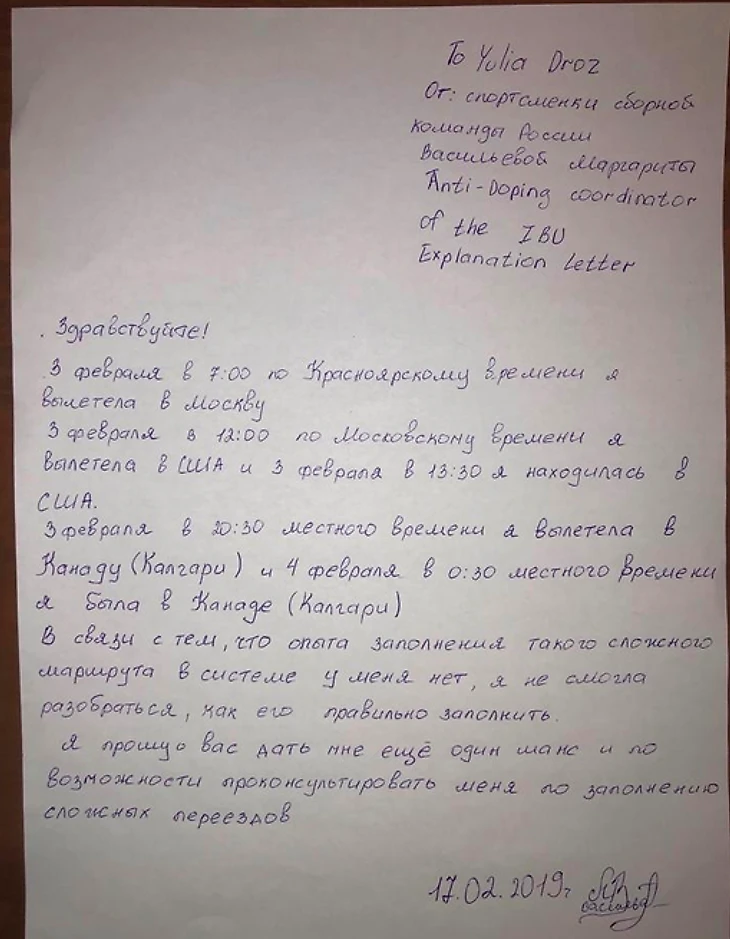 To Yulia Droz
От: спортсменки сборной
команды России
Васильевой Маргариты
Anti-Doping coordinator
of the IBU
Explanation Letter
Здравствуйте!
3 февраля в 7:00 по Красноярскому времени я
вылетела в Москву
3 февраля в 12:00 по Московскому времени я
вылетела в США и 3 февраля в 13:30 я находилась в
США.
3 февраля в 20:30 местного времени я вылетела в
Канаду (Калгари) и 4 февраля в 0:30 местного времени
я была в Канаде (Калгари)
В связи с тем, что опыта заполнения такого сложного
маршрута в системе у меня нет, я не смогла
разобраться, как его правильно заполнить.
Я прошу вас дать мне ещё один шанс и по
возможности проконсультировать меня по заполнению
сложных переездов
17.02.2019г